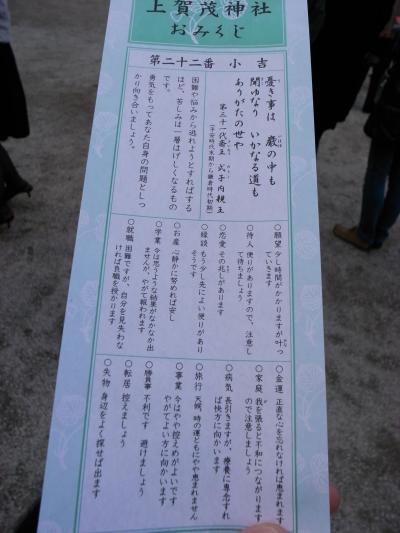 上賀茂神社
おみくじ
第二十二番 小吉
憂き事は 巌の中も
聞ゆなり いかなる道も
ありがたの世や
第三十一代斎王 式子内親王
(平安時代末期から鎌倉時代初期)
困難や悩みから逃れようとすればする
ほど、苦しみは一層はげしくなるもの
です。
勇気をもってあなた自身の問題としっ
かり向き合いましょう。
○願望 少し時間がかかりますが叶っ
ていきます
○待人 便りがありますので、注意し
て待ちましょう
○恋愛 その兆しがあります
○縁談 もう少し先によい便りがあり
そうです
○お産 心静かに努めれば安し
○学業 今は思うような結果がなかなか出
ませんが、やがて報われます
○就職 困難ですが、自分を見失わな
ければ良職を授かります
○金運 正直な心を忘れなければ恵まれます
○家庭 我を張ると不和につながります
ので注意しましょう
○病気 長引きますが、療養に専念すれ
ば快方に向かいます
○旅行 天候、時の運ともにやや恵まれません
○事業 今はやや控えめがよいです
やがてよい方に向かいます
○勝負事 不利です 避けましょう
○転居 控えましょう
○失物 身辺をよく探せば出ます